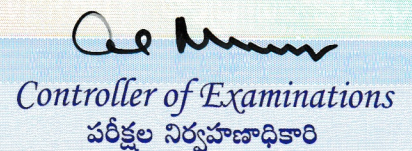 Controller of Examinations
పరీక్షల నిర్వహణాధికారి